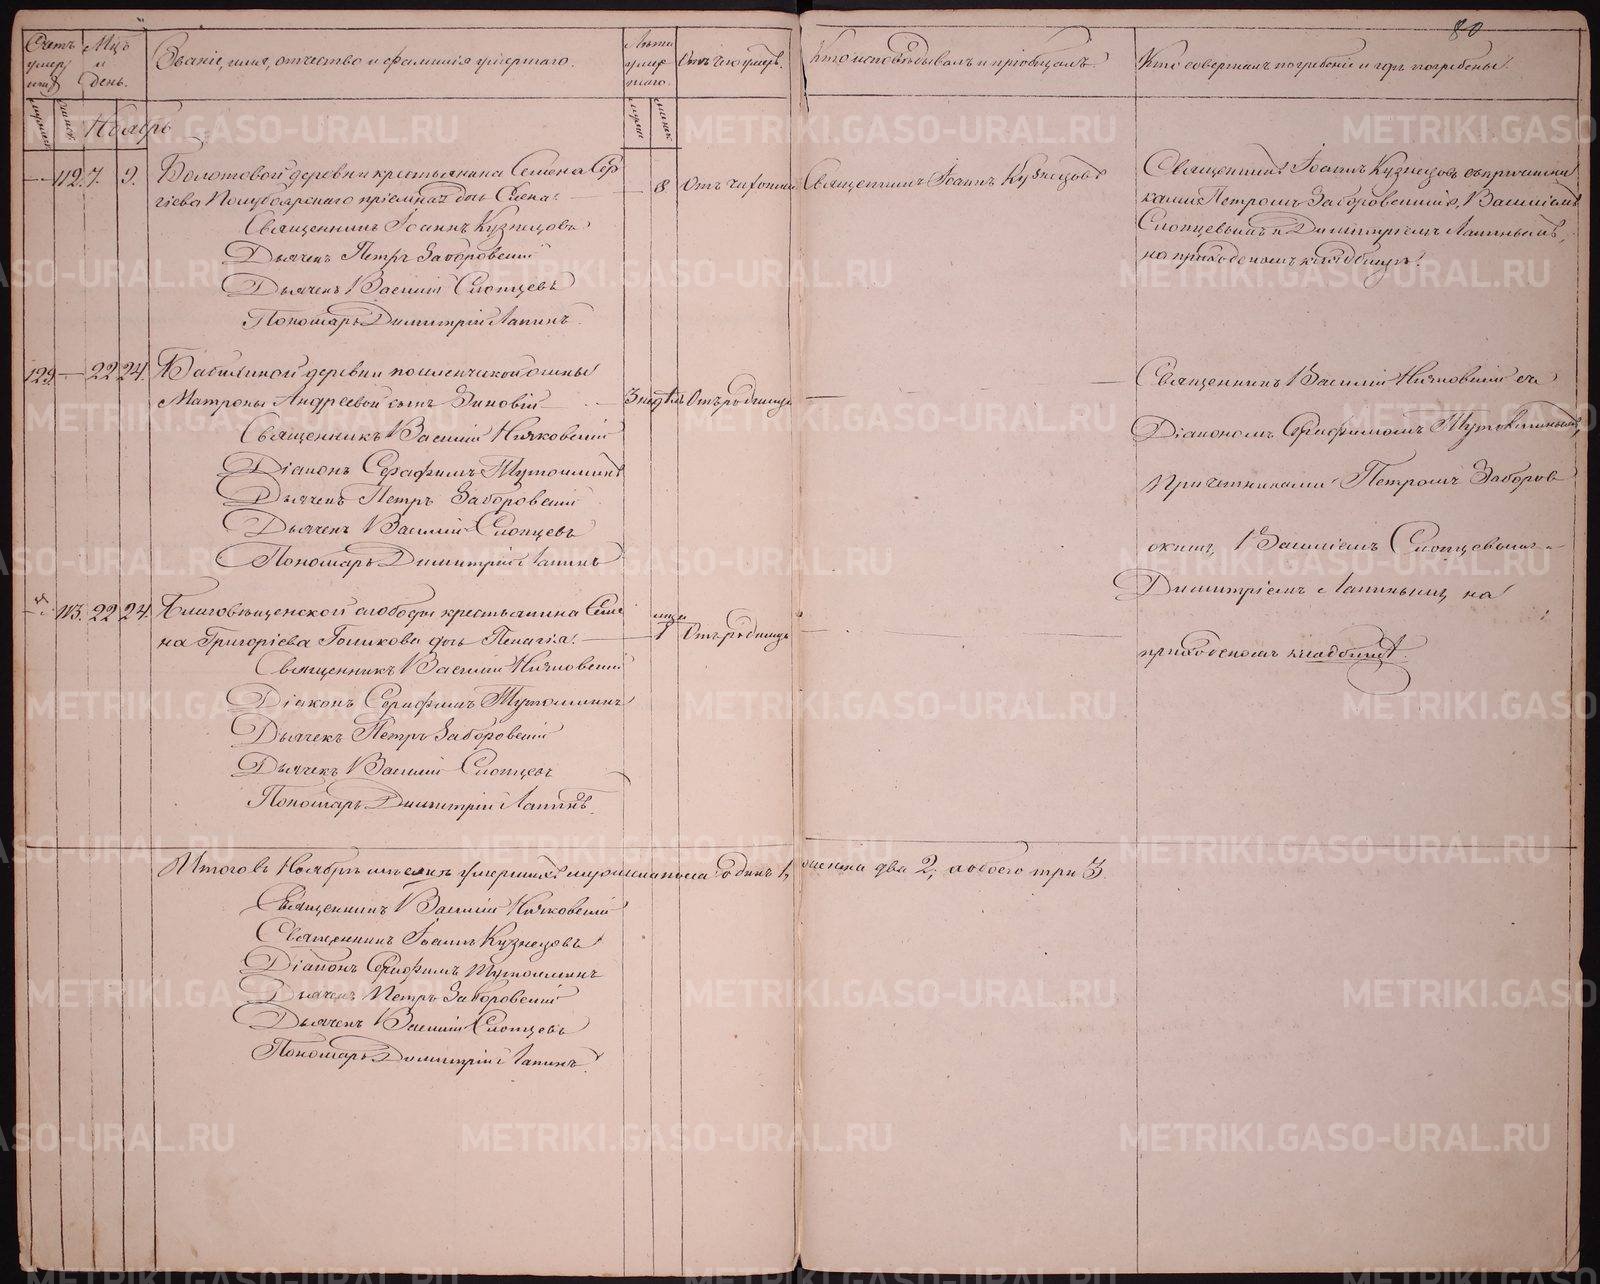 80
Счетъ умерших
Мцъ и день.
Званіе, имя, отчество и фамилія умершаго.
Лѣта умершаго.
Отъ чего умеръ.
Кто исповѣдывалъ и пріобщалъ.
Кто совершалъ погребеніе и гдѣ погребены.
Ноябрь
— 112. 7. 9. Болотовой деревни крестьянина Семена Сер
гіева Полубоярскаго дочь
— 8
Священникъ Іоаннъ Кузнецовъ
Священникъ Іоаннъ Кузнецовъ съ причетни
ками Петромъ Заборовскимъ, Василіемъ
Слопцевымъ и Димитріемъ Лапинымъ,
на приходскомъ кладбищѣ.
Священникъ Іоаннъ Кузнецовъ
Дьячекъ Петръ Заборовскій
Дьячекъ Василій Слопцевъ
Пономарь Димитрій Лапинъ.
129. — 22 24. деревни
Матроны Андреевой сынъ Зиновій
3 недѣль Отъ родимца
Священникъ Василій Нияковскій съ
Діакономъ Серафимомъ
Причетниками Петромъ Заборов
скимъ, Василіемъ Слопцевымъ и
Димитріемъ Лапинымъ, на
приходскомъ кладбищѣ.
Священникъ Василій Нияковскій
Діаконъ Серафимъ
Дьячекъ Петръ Заборовскій
Дьячекъ Василій Слопцевъ
Пономарь Димитрій Лапинъ
— 113. 22 24. Благовѣщенской слободы крестьянина Семе
на Григоріева Голикова дочь Пелагія.
мца
— 1 Отъ родимца
Священникъ Василій Нияковскій
Діаконъ Серафимъ
Дьячекъ Петръ Заборовскій
Дьячекъ Василій Слопцевъ
Пономарь Димитрій Лапинъ.
Итого въ Ноябрѣ мѣсяцѣ умершихъ мужеска пола одинъ 1, женска два 2, а обоего три 3.
Священникъ Василій Нияковскій
Священникъ Іоаннъ Кузнецовъ
Діаконъ Серафимъ
Дьячекъ Петръ Заборовскій
Дьячекъ Василій Слопцевъ
Пономарь Димитрій Лапинъ.
METRIKI.GASO-URAL.RU